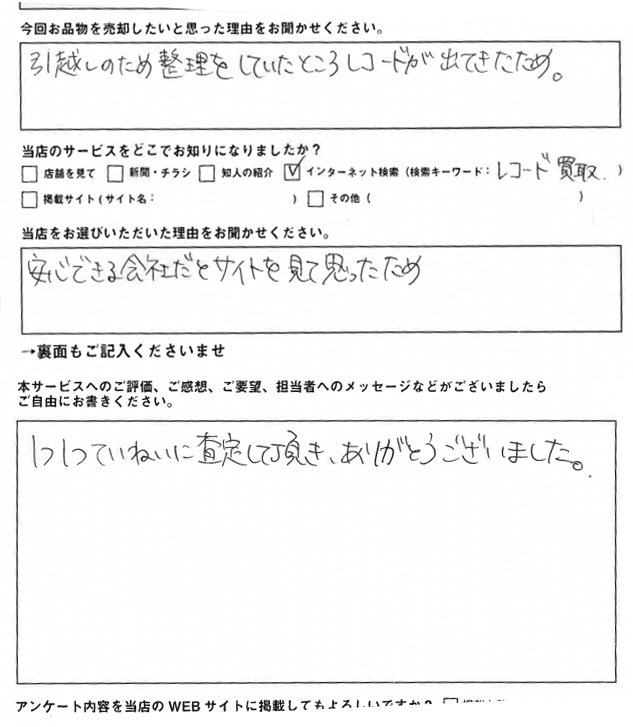 今回お品物を売却したいと思った理由をお聞かせください。
引越しのため整理をしていたところレコードが出てきたため。
当店のサービスをどこでお知りになりましたか？
□ 店舗を見て □ 新聞・チラシ □ 知人の紹介 ☑ インターネット検索（検索キーワード：レコード買取.）
□ 掲載サイト（サイト名： ） □ その他（ ）
当店をお選びいただいた理由をお聞かせください。
安心できる会社だとサイトを見て思ったため
→裏面もご記入くださいませ
本サービスへのご評価、ご感想、ご要望、担当者へのメッセージなどがございましたら
ご自由にお書きください。
1つ1つていねいに査定して頂き、ありがとうございました。
アンケート内容を当店のWEBサイトに掲載してもよろしいですか？ □